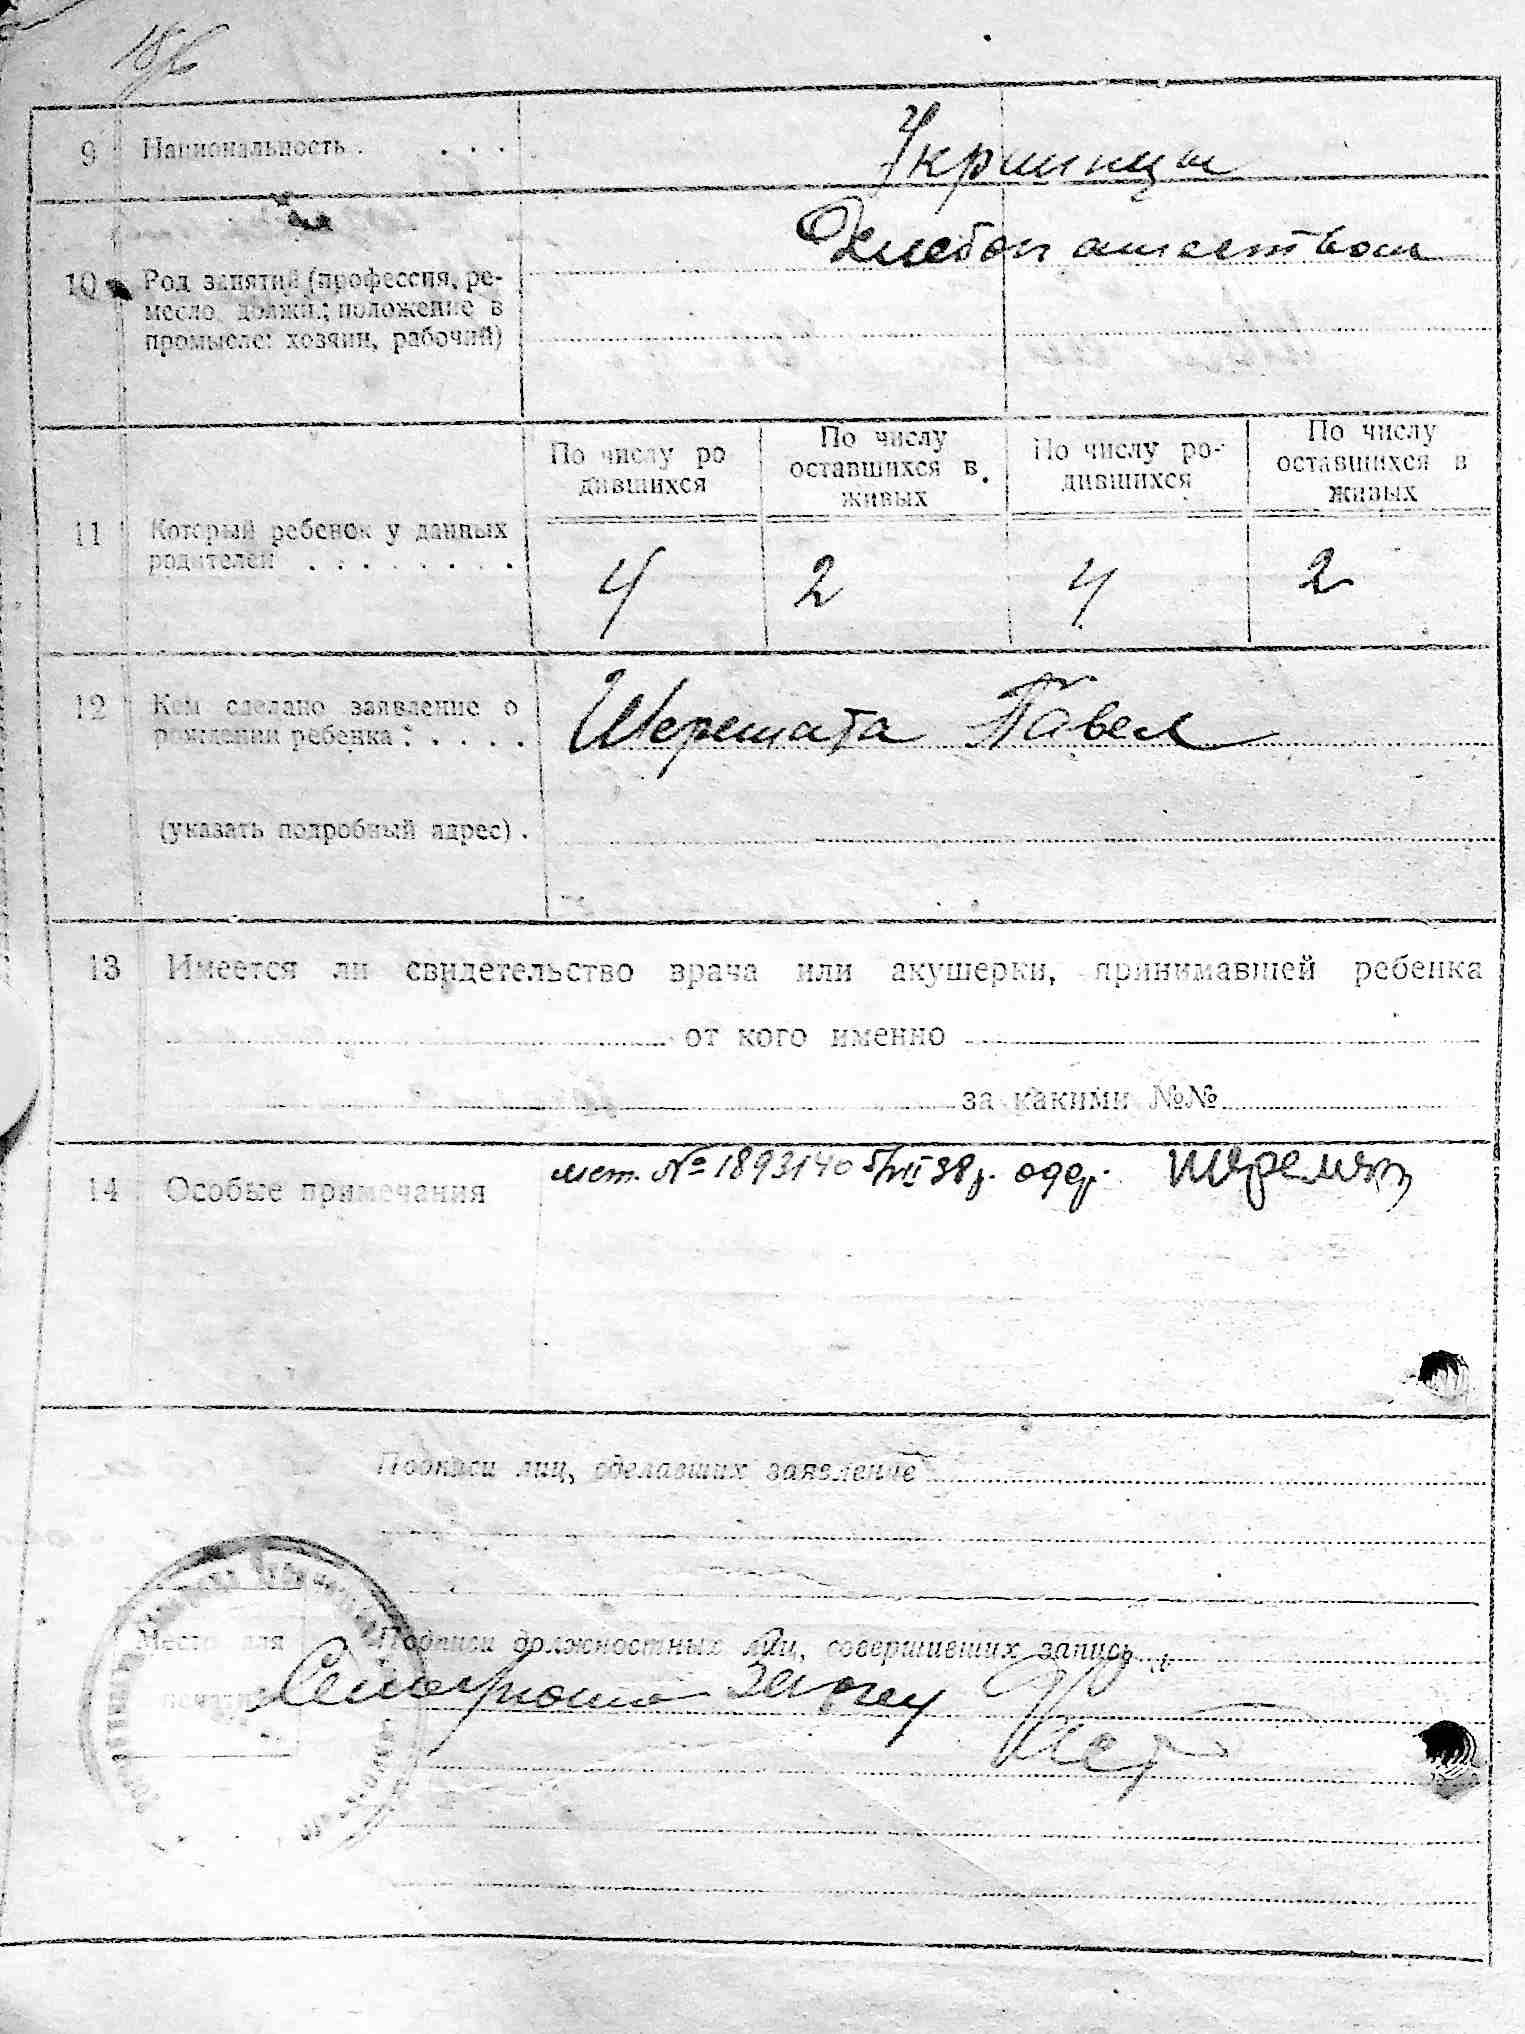 9 Национальность . . . . Украинцы
10 Род занятий (профессия, ре-
месло, должн.; положение в
промысле: хозяин, рабочий)
По числу ро
дившихся
По числу
оставшихся в
живых
По числу ро-
дившихся
По числу
оставшихся в
живых
11 Который ребенок у данных
родителей . . . . . . . .
4 2 4 2
12 Кем сделано заявление о
рождении ребенка : . . . .
Шеремата Павел
(указать подробный адрес) .
13 Имеется ли свидетельство врача или акушерки, принимавшей ребенка
от кого именно
за какими №№
14 Особые примечания
№ 1893140 5/VII 38 р. одер.
Подписи лиц, сделавших заявление
Место для
печати
Подписи должностных лиц, совершивших запись